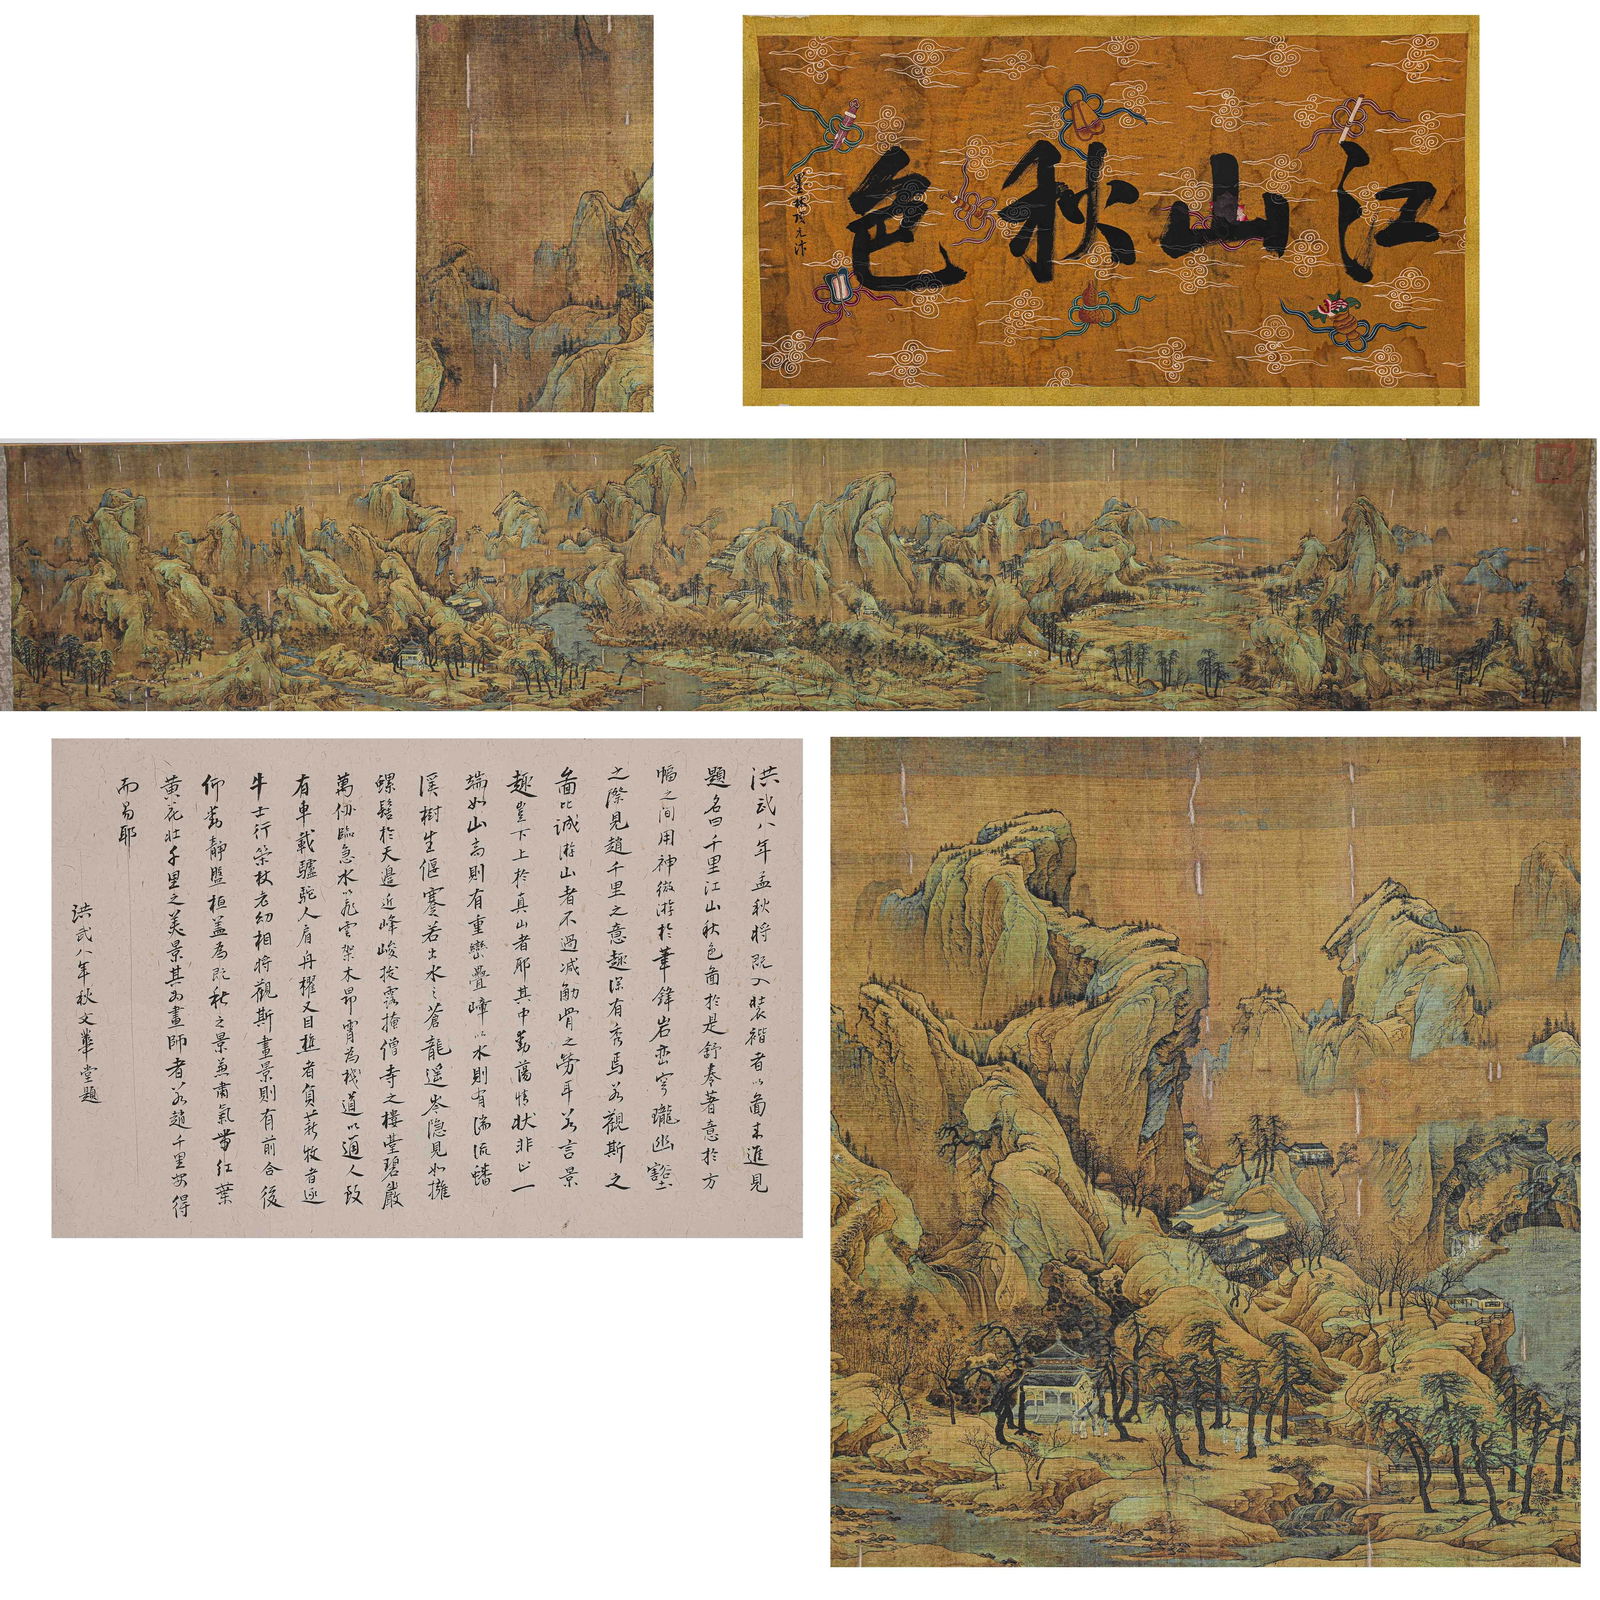 江山秋色
墨林項元汴
洪武八年孟秋將既入裝褙者以圖來進見
題名曰千里江山秋色圖於是舒卷著意於方
幅之間用神微游於筆鋒岩巒穹瓏幽豁
之際見趙千里之意趣深有秀焉若觀斯之
圖比誠游山者不過減觔骨之勞耳若言景
趣豈下上於真山者耶其中動蕩情狀非止一
端如山高則有重巒疊嶂以水則有湍流蟠
溪樹生偃蹇若出水之蒼龍遥岑隱見如擁
螺髻於天邊近峰峻拔露掩僧寺之樓臺碧巖
萬仞臨急水以飛雲架木昂霄為棧道以通人致
有車載驢駝人肩舟櫂又目樵者負薪牧者逐
牛士行策杖老幼相將觀斯畫景則有前合後
仰動靜盤桓蓋為既秋之景兼肅氣帶紅葉
黃花壯千里之美景其為畫師者若趙千里安得
而易耶
洪武八年秋文華堂題